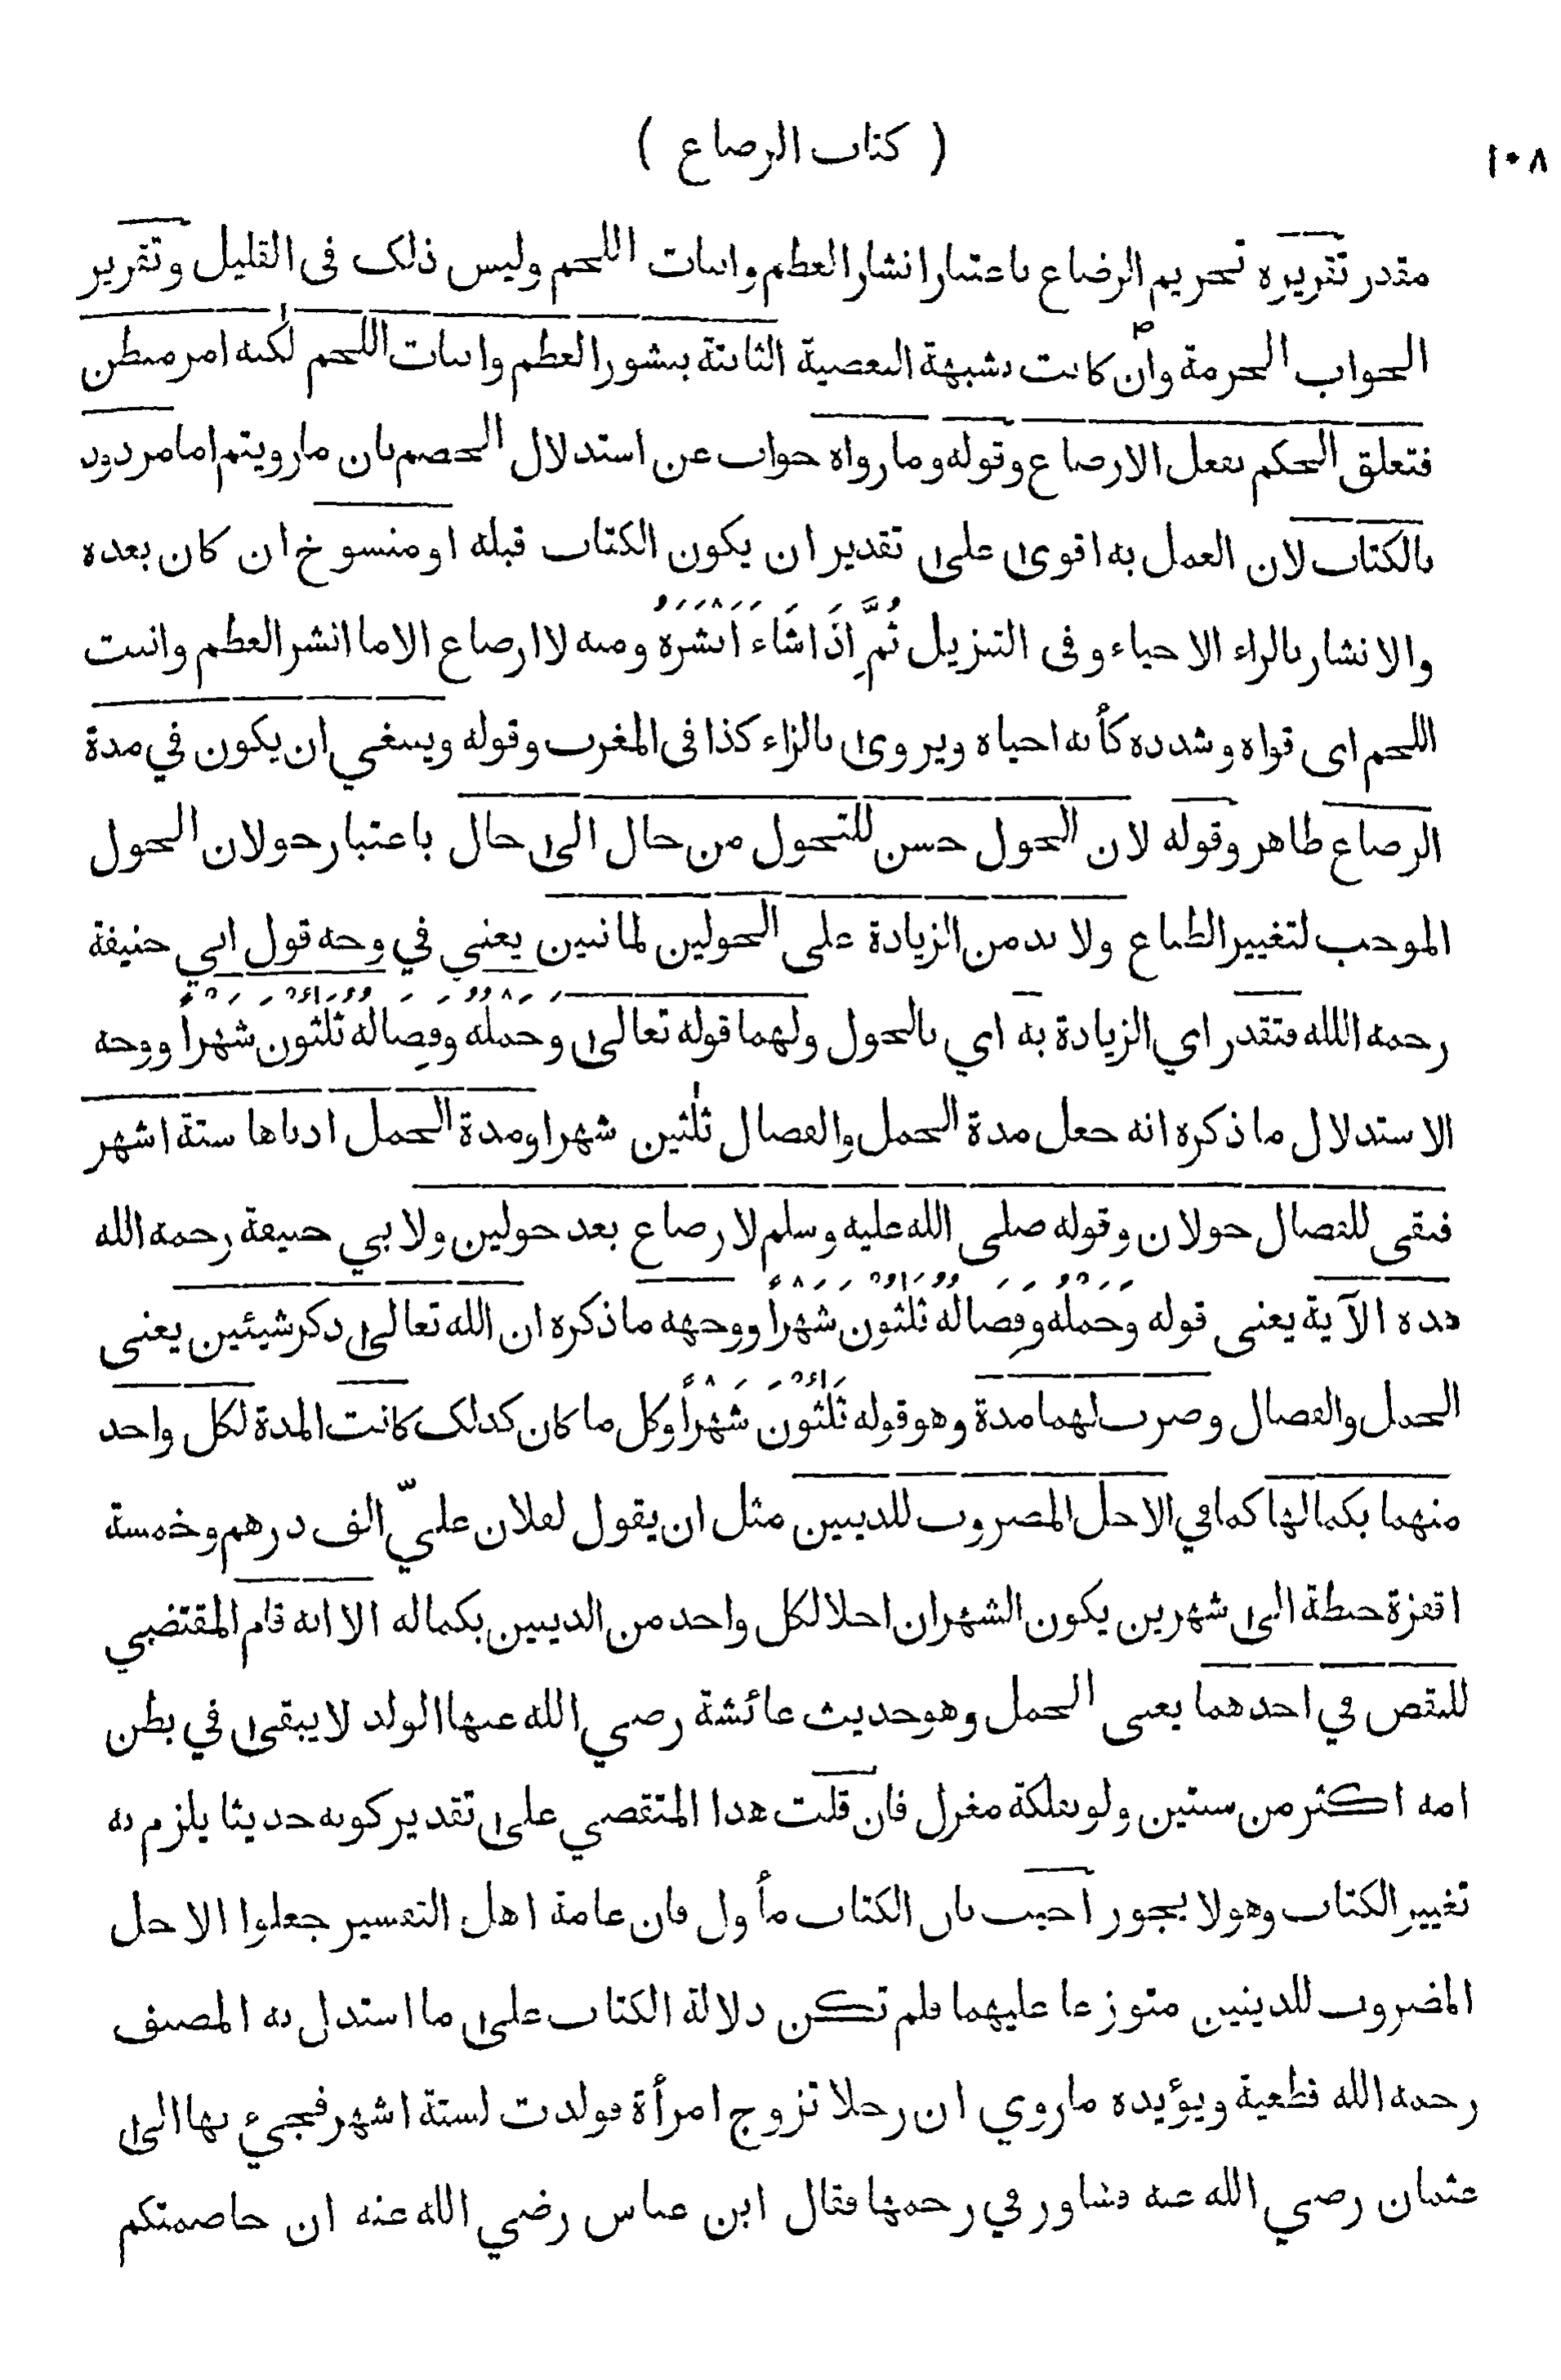 ١٠٨
( كتاب الرضاع )
مقدر تقريره تحريم الرضاع باعتبار انشار العظم وانبات اللحم وليس ذلك في القليل وتقرير
الجواب الحرمة وان كانت لشبهة البعضية الثابتة بنشور العظم وانبات اللحم لكنه امر مبطن
فتعلق الحكم بفعل الارضاع وقوله وما رواه جواب عن استدلال الخصم بان ما رويتم اما مردود
بالكتاب لان العمل به اقوى على تقدير ان يكون الكتاب قبله او منسوخ ان كان بعده
والانشار بالراء الاحياء وفي التنزيل ثُمَّ اِذَا شَاءَ اَنْشَرَهُ ومنه لا ارضاع الا ما انشر العظم وانبت
اللحم اي قواه وشدده كأنه احياه ويروى بالزاء كذا في المغرب وقوله وينبغي ان يكون في مدة
الرضاع ظاهر وقوله لان الحول حسن للتحول من حال الى حال باعتبار حولان الحول
الموجب لتغيير الطباع ولا بد من الزيادة على الحولين لما نبين يعني في وجه قول ابي حنيفة
رحمه الله فتقدر اي الزيادة به اي بالحول ولهما قوله تعالى وَحَمْلُهُ وَفِصَالُهُ ثَلٰثُونَ شَهْراً ووجه
الاستدلال ما ذكره انه جعل مدة الحمل والفصال ثلٰثين شهرا ومدة الحمل ادناها ستة اشهر
فبقي للفصال حولان وقوله صلى الله عليه وسلم لا رضاع بعد حولين ولابي حنيفة رحمه الله
هذه الآية يعنى قوله وَحَمْلُهُ وَفِصَالُهُ ثَلٰثُونَ شَهْراً ووجهه ما ذكره ان الله تعالى ذكر شيئين يعنى
الحمل والفصال وضرب لهما مدة وهو قوله ثَلٰثُونَ شَهْراً وكل ما كان كذلك كانت المدة لكل واحد
منهما بكمالها كما في الاجل المضروب للدينين مثل ان يقول لفلان عليّ الف درهم وخمسة
اقفزة حنطة الى شهرين يكون الشهران اجلا لكل واحد من الدينين بكماله الا انه قام المقتضي
للنقص في احدهما يعنى الحمل وهو حديث عائشة رضي الله عنها الولد لا يبقى في بطن
امه اكثر من سنتين ولو بفلكة مغزل فان قلت هذا المنقصي على تقدير كونه حديثا يلزم به
تغيير الكتاب وهو لا يجوز اجيب بان الكتاب مأول فان عامة اهل التفسير جعلوا الاجل
المضروب للدينين متوزعا عليهما فلم تكن دلالة الكتاب على ما استدل به المصنف
رحمه الله قطعية ويؤيده ما روي ان رجلا تزوج امرأة فولدت لستة اشهر فجيء بها الى
عثمان رضي الله عنه فشاور في رجمها فقال ابن عباس رضي الله عنه ان خاصمتكم